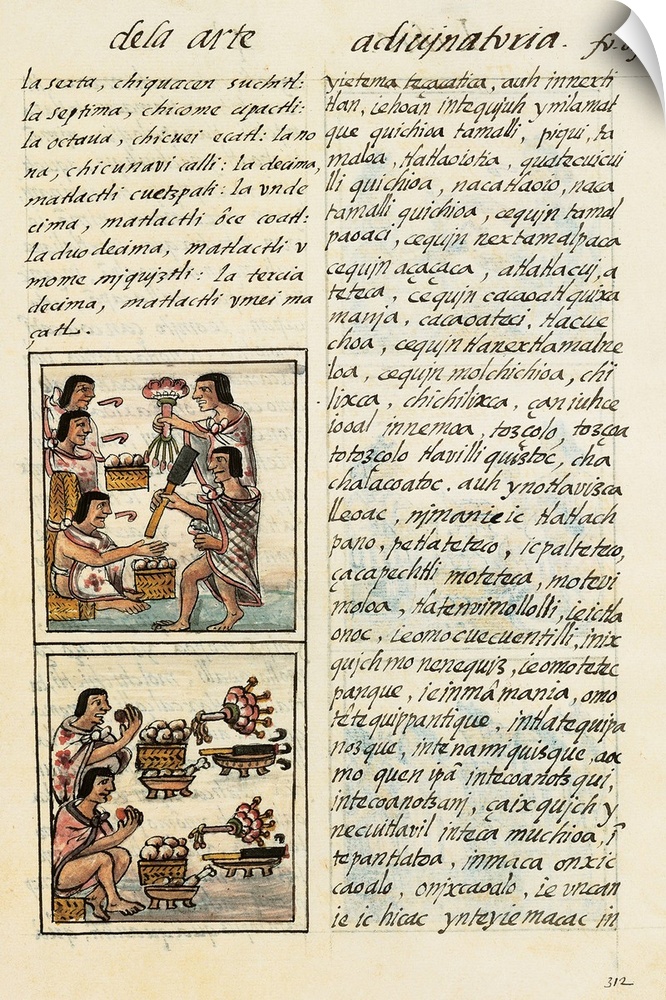 dela arte
adiujnaturia. fo.
la sexta, chiquacen suchitl:
la septima, chicome cipactli:
la octaua, chicuei ecatl: la no
na, chicunavi calli: la decima,
matlactli cuetzpali: la vnde
cima, matlactli ôce coatl:
la duo decima, matlactli v
mome mjqujztli: la tercia
decima, matlactli vmei ma
çatl.
yietema tecacatica, auh innexti
tlan, iehoan intequjuh ymilamat
que quichioa tamalli, piqui, ta
maloa, tlatlaoiotia, quatecuicui
lli quichioa, nacatlaoio, naca
tamalli quichioa, cequjn tamal
paoaci, cequjn nextamalpaca
cequjn açacaça, atlatlacuj, a
teteca, cequjn cacaoatl quixa
manja, cacaoateci. tlacue
choa, cequjn tlanextlamalne
loa, cequjn molchichioa, chi
lixca, chichilixca, çanjuhce
iooal innemoa, tozcolo, tozcoa
totozcolo tlavilli quiztoc, cha
chalacaoatoc. auh ynotlavizca
lleoac, njmanieic tlatlach
pano, petlateteco, icpalteteco,
çacapechtli moteteca, motevi
moloa, tlatenvimollolli, ieictla
onoc, ieomocuecuentilli, inix
quichmo nenequiz, ieomotetec
panque, ieinmâmania, omo
têtequippantique, intlatequipa
nozque, intenamiquizque, aoc
mo quen ipâ intecoanotzqui,
intecoanotzani, çaixquich y
necuitlavil inteca muchioa, î
tepantlatoa, inmaca onxic
caoalo, onjxcaoalo, ie vncan
ie ic hicac ynteyiemacac in
312